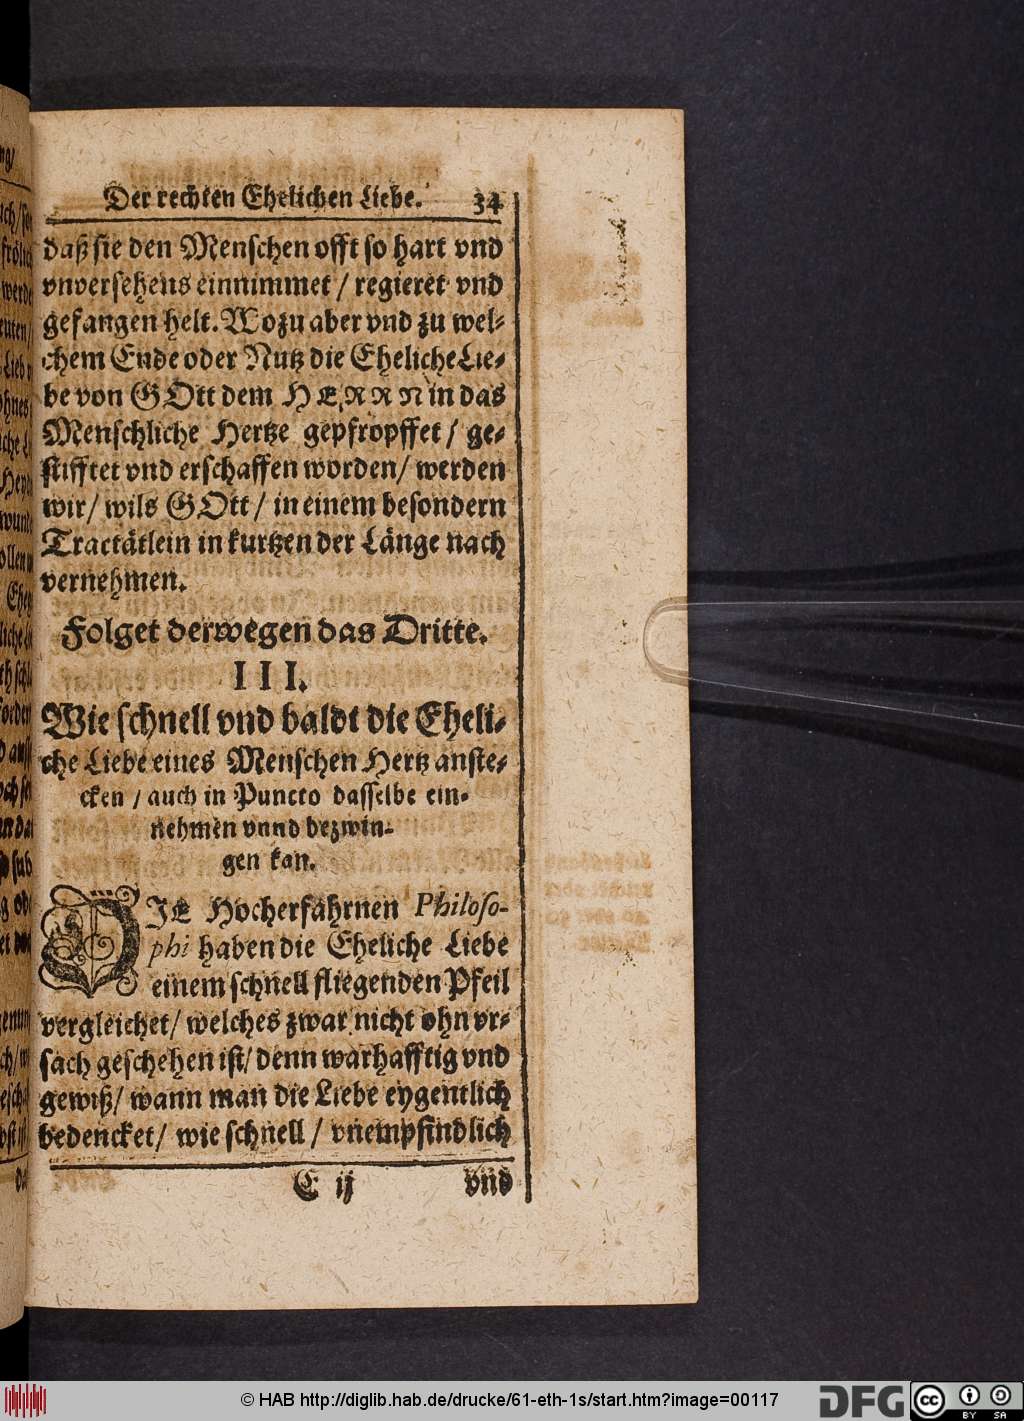 Der rechten Ehelichen Liebe. 34
daß sie den Menschen offt so hart vnd
vnversehens einnimmet / regieret vnd
gefangen helt. Wozu aber vnd zu wel-
chem Ende oder Nutz die Eheliche Lie-
be von GOtt dem HERRN in das
Menschliche Hertze gepfropffet / ge-
stifftet vnd erschaffen worden / werden
wir / wils GOtt / in einem besondern
Tractätlein in kurtzen der Länge nach
vernehmen.
Folget derwegen das Dritte.
III.
Wie schnell vnd baldt die Eheli-
che Liebe eines Menschen Hertz anste-
cken / auch in Puncto dasselbe ein-
nehmen vnnd bezwin-
gen kan.
DIE Hocherfahrnen Philoso-
phi haben die Eheliche Liebe
einem schnell fliegenden Pfeil
vergleichet / welches zwar nicht ohn vr-
sach geschehen ist / denn warhafftig vnd
gewiß / wann man die Liebe eygentlich
bedencket / wie schnell / vnempfindlich
C ij vnd
© HAB http://diglib.hab.de/drucke/61-eth-1s/start.htm?image=00117
DFG
cc
BY SA